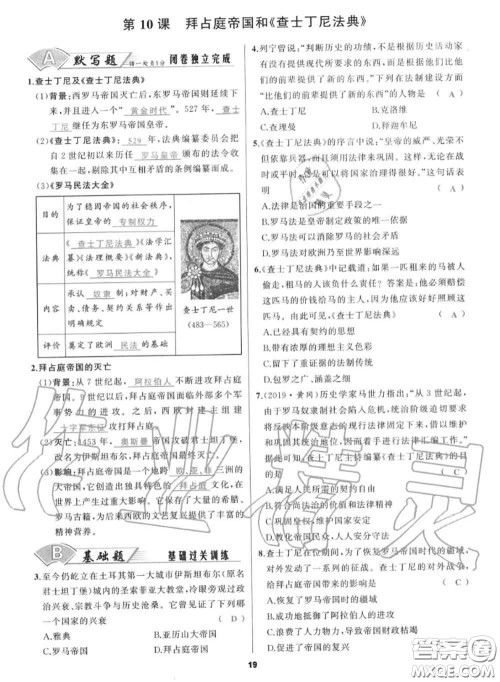 第10课 拜占庭帝国和《查士丁尼法典》
A 默写题 (错一处扣1分) 闭卷独立完成
1.查士丁尼及《查士丁尼法典》
(1)背景:西罗马帝国灭亡后,东罗马帝国则延续下
来,并且进入一个“ 黄金时代 ”。527年, 查士
丁尼 继任为东罗马帝国皇帝。
(2)《查士丁尼法典》:529年,法典编纂委员会把
自2世纪初以来历任 罗马皇帝 颁布的法令收集
在一起,剔除其中互相矛盾的条例编纂而成。
(3)《罗马民法大全》
目的 为了稳固帝国的社会秩序,
保证皇帝的 专制权力
法典 《 查士丁尼法典 》《法学汇
纂》《法理概要》《新法典》,
统称《 罗马民法大全 》
内容 承认 奴隶 制;对财产、买
卖、债务、契约关系等作出
明确规定
评价 奠定了欧洲 民法 的基础
查士丁尼一世
(483—565)
2.拜占庭帝国的灭亡
(1)背景:从7世纪起, 阿拉伯人 不断进攻拜占庭
帝国。9世纪以后,拜占庭帝国面临外部多个军
事势力的进攻。之后,西欧封建主组建
十字军东征
(2)灭亡:1453年, 奥斯曼 帝国攻破君士坦丁堡,
改名为伊斯坦布尔,拜占庭帝国最终灭亡。
(3)影响:拜占庭帝国是一个地跨 欧、亚、非 三洲的
大帝国,它创造出独具特色的 拜占庭 文化,在
世界上产生过重大影响。它保存了大量的希腊、
罗马古籍,为后来西欧的文艺复兴提供了丰富的
精神营养。
B 基础题 基础过关训练
3.至今仍屹立在土耳其第一大城市伊斯坦布尔(原名
君士坦丁堡)城内的圣索菲亚大教堂,冷眼旁观过政
治兴衰、宗教斗争与历史沧桑。它曾见证了下列哪
一个国家的兴衰 ( D )
A.雅典 B.亚历山大帝国
C.罗马帝国 D.拜占庭帝国
4.列宁曾说:“判断历史的功绩,不是根据历史活动家
有没有提供现代所要求的东西,而是根据他们比他们
的前辈提供了新的东西。”下列在法制建设方面
“比他们的前辈提供了新的东西”的人物是 ( A )
A.查士丁尼 B.克洛维
C.查理曼 D.释迦牟尼
5.《查士丁尼法典》的序言中说:“皇帝的威严,光荣不
但依靠兵器,而且须用法律来巩固。这样,无论在战
时或平时,总是可以将国家治理得很好。”这句话表
明 ( A )
A.法律是治国的重要手段之一
B.罗马法是皇帝制定政策的唯一依据
C.罗马法可以消除罗马的社会矛盾
D.罗马法对欧洲乃至世界影响深远
6.《查士丁尼法典》中记载道:如果一匹租来的马被人
偷走,租马的人该负什么责任?答案是:他必须赔偿
这匹马的价钱给马的主人,因为他应该好好照顾这匹
马。由此可见,《查士丁尼法典》 ( A )
A.已经具有契约的思想
B.带有浓厚的理想主义色彩
C.留下了重证据的法制传统
D.包罗之广、涵盖之细
7.(2019·黄冈)历史学家马世力指出:“从3世纪起,
由于罗马奴隶制社会陷入危机,统治阶级迫切要求
将反映本阶级意志的现行法律固定下来,借以维护
和巩固其统治地位,因而着手进行法律的编纂工作。”
可见,查士丁尼主持编纂《查士丁尼法典》的主要目
的是
A.满足人民所需的契约自由
B.符合时尚的政治价值和法律精神
C.巩固皇权,维护统治
D.教化国民,使人人安分守己
8.查士丁尼在位期间,为了恢复罗马帝国时代的疆域,
对外发动了一系列战争。查士丁尼的对外战争,
给拜占庭帝国带来的影响是
A.恢复了罗马帝国时期的疆域
B.成功地抵御了阿拉伯人的进攻
C.浪费了人力、物力,导致帝国财政枯竭
D.促进了帝国的复兴
19